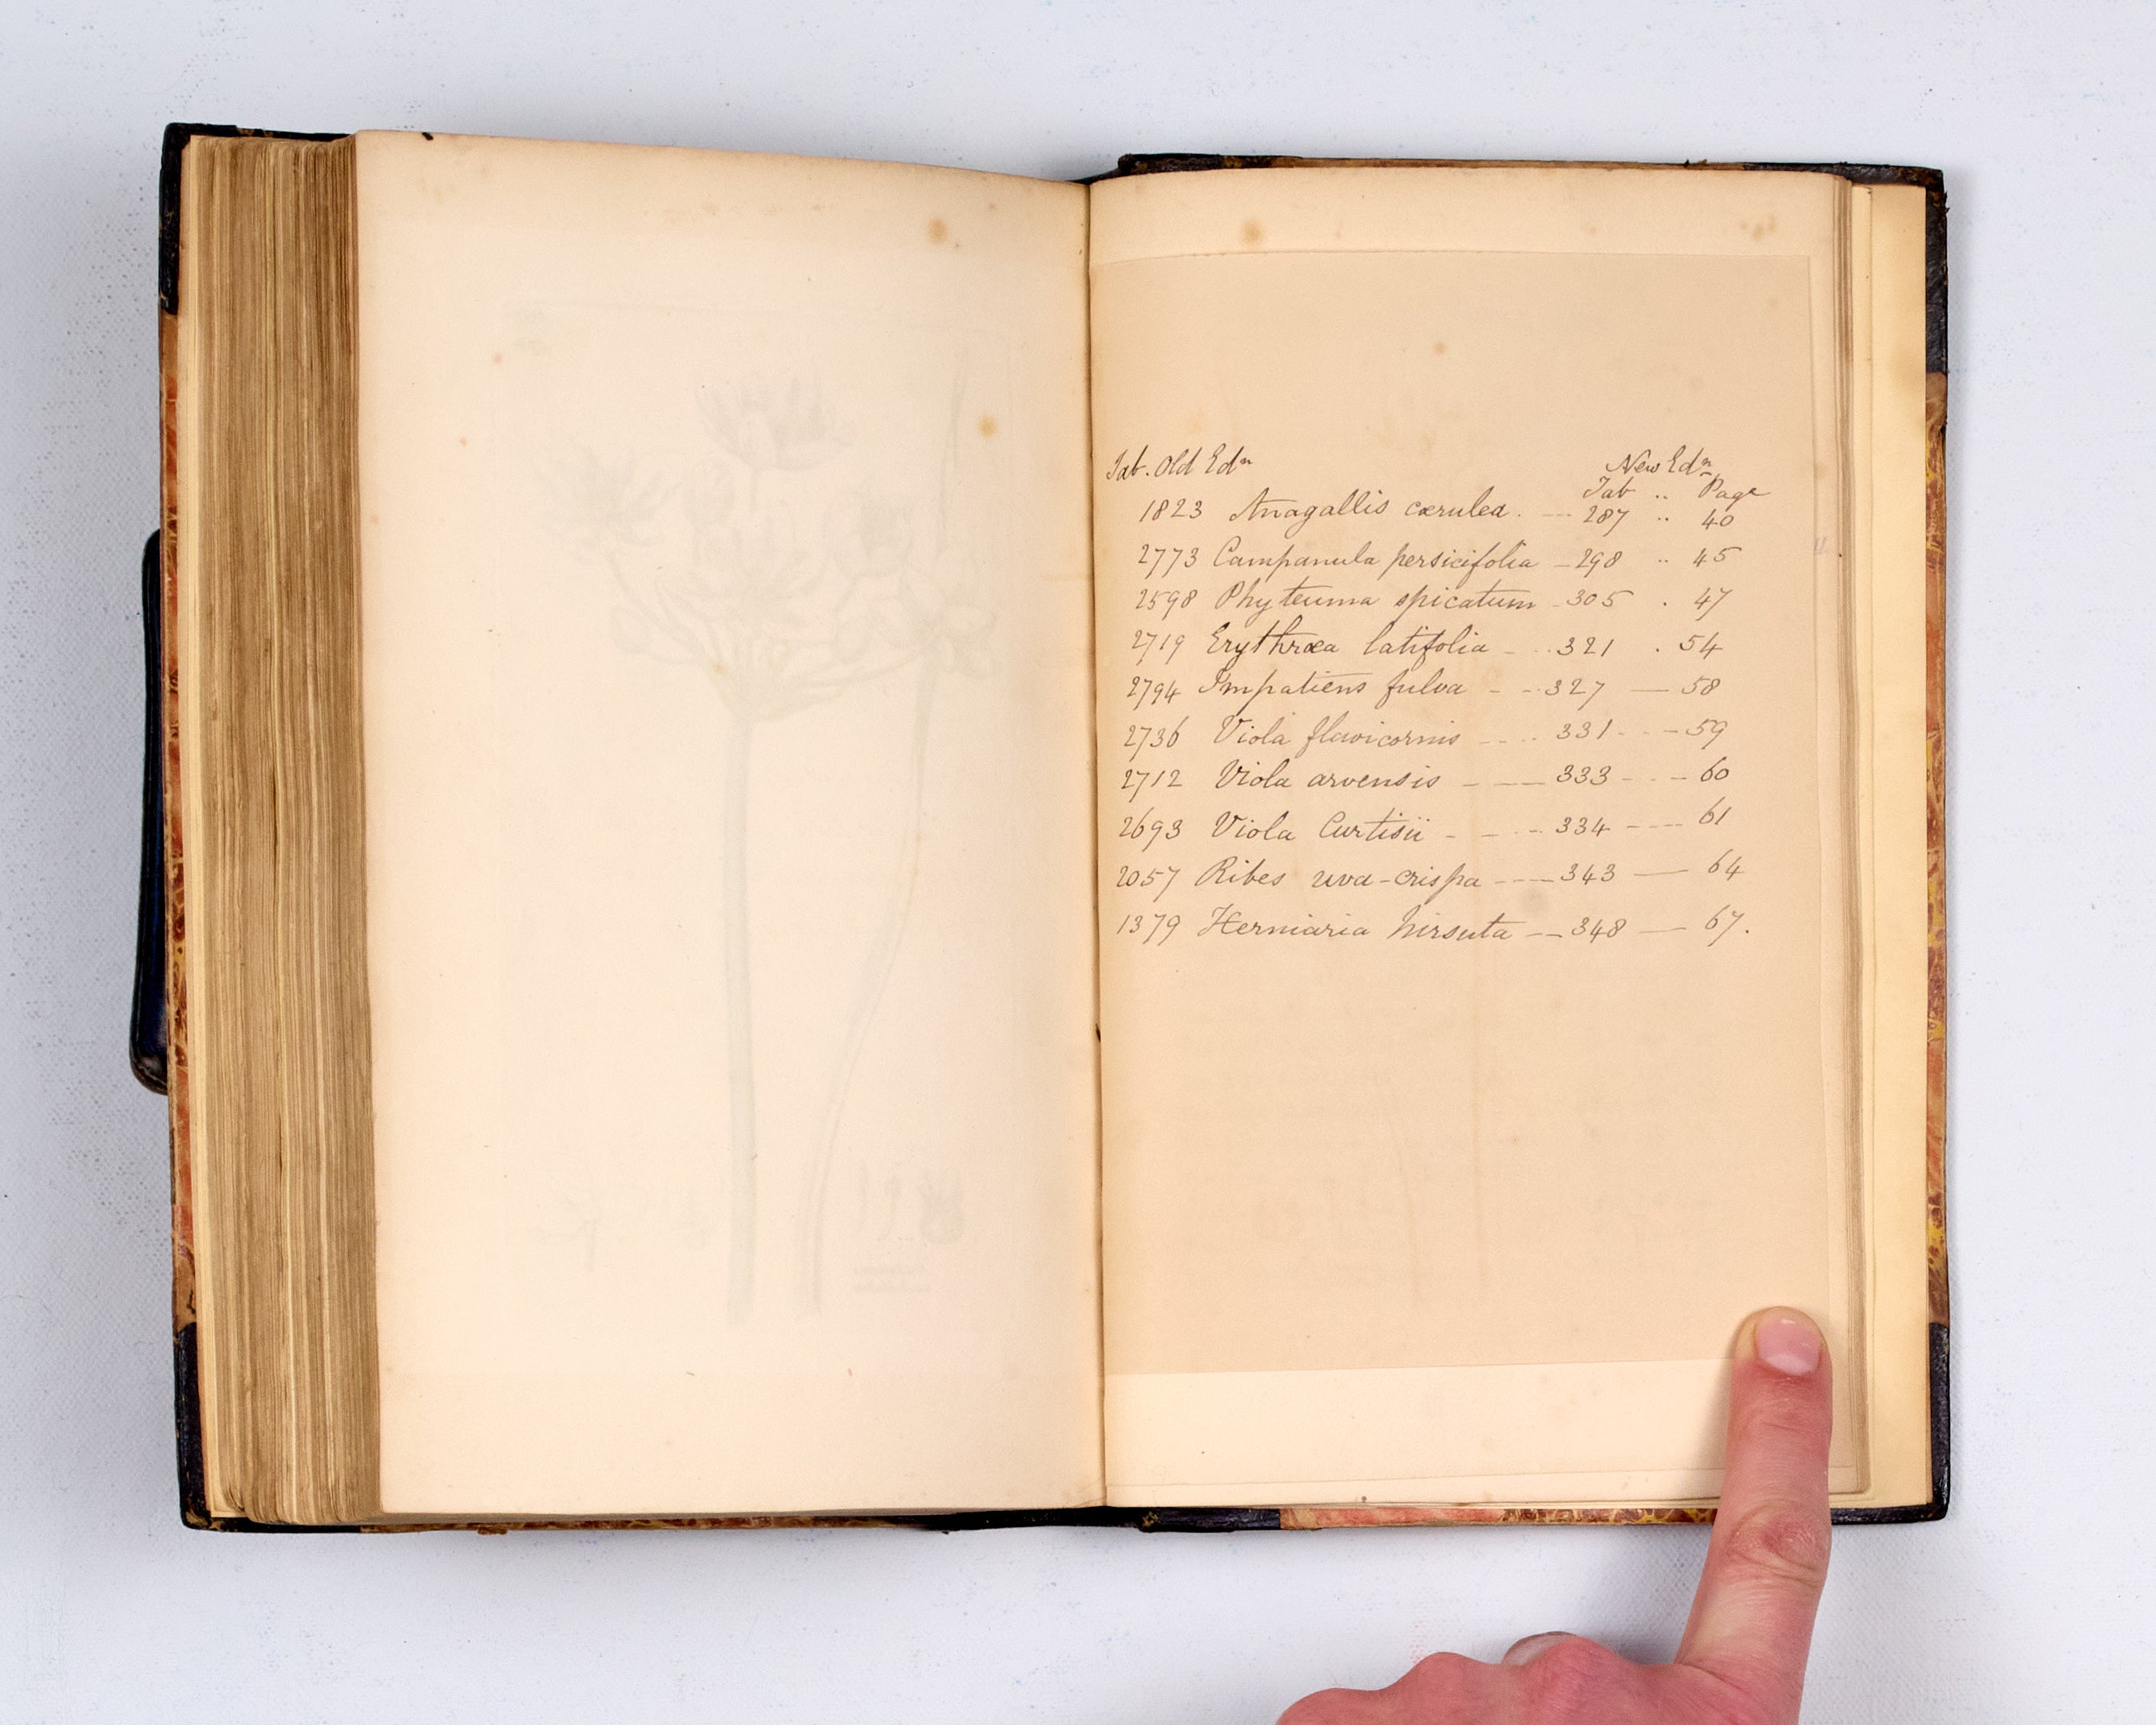 Tab. Old Edn New Edn
Tab .. Page
1823 Anagallis cærulea. --- 287 .. 40
2773 Campanula persicifolia - 298 .. 45
2598 Phyteuma spicatum - 305 . 47
2719 Erythræa latifolia - .. 321 . 54
2794 Impatiens fulva - - .. 327 — 58
2736 Viola flavicornis - - .. 331 - - - 59
2712 Viola arvensis - —— 333 - - - 60
2693 Viola Curtisii - - .. 334 ---- 61
2057 Ribes uva-crispa ---- 343 — 64
1379 Herniaria hirsuta -— 348 — 67.